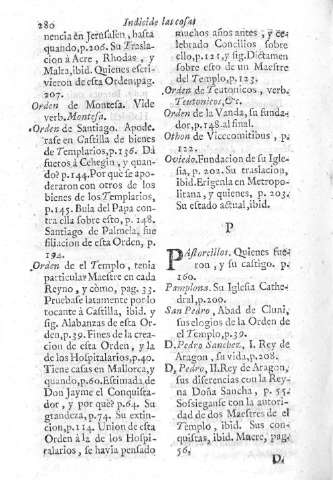 280 Indicide las cosas
nencia en Jerusalen, hasta
quando, p.206. Su Trasla-
cion à Acre, Rhodas, y
Malta, ibid. Quienes escri-
vieron de esta Orden pag.
207.
Orden de Montesa. Vide
verb. Montesa.
Orden de Santiago. Apode-
rase en Castilla de bienes
de Templarios, p.136. Dà
fueros à Cehegin, y quan-
do? p.144. Por què se apo-
deraron con otros de los
bienes de los Templarios,
p.145. Bula del Papa con-
tra ella sobre esto, p. 148.
Santiago de Palmela, fue
filiacion de esta Orden, p.
194.
Orden de el Templo, tenia
particular Maestre en cada
Reyno, y còmo, pag. 33.
Pruebase latamente por lo
tocante à Castilla, ibid. y
sig. Alabanzas de esta Or-
den, p.39. Fines de la crea-
cion de esta Orden, y la
de los Hospitalarios, p.40.
Tiene casas en Mallorca, y
quando, p.60. Estimada de
Don Jayme el Conquista-
dor, y por què? p.64. Su
grandeza, p.74. Su extin-
cion, p.114. Union de esta
Orden à la de los Hospi-
ralarios, se havia pensado
muchos años antes, y ce-
lebrado Concilios sobre
ello, p.121, y sig. Dictamen
sobre esto de un Maestre
del Templo, p.123.
Orden de Teutonicos, verb.
Teutonicos, &c.
Orden de la Vanda, su funda-
dor, p.148. al final.
Othon de Vicecomitibus, p.
122.
Oviedo. Fundacion de su Igle-
sia, p. 202. Su traslacion,
ibid. Erigenla en Metropo-
litana, y quienes, p. 203.
Su estado actual, ibid.
P
PAstorcillos. Quienes fue-
ron, y su castigo. p.
160.
Pamplona. Su Iglesia Cathe-
dral, p.200.
San Pedro, Abad de Cluni,
sus elogios de la Orden de
el Templo, p.39.
D. Pedro Sanchez, I. Rey de
Aragon, su vida, p.208.
D. Pedro, II. Rey de Aragon,
sus diferencias con la Rey-
na Doña Sancha, p. 55.
Sossieganse con la autori-
dad de dos Maestres de el
Templo, ibid. Sus con-
quistas, ibid. Muere, pag.
56.
D.